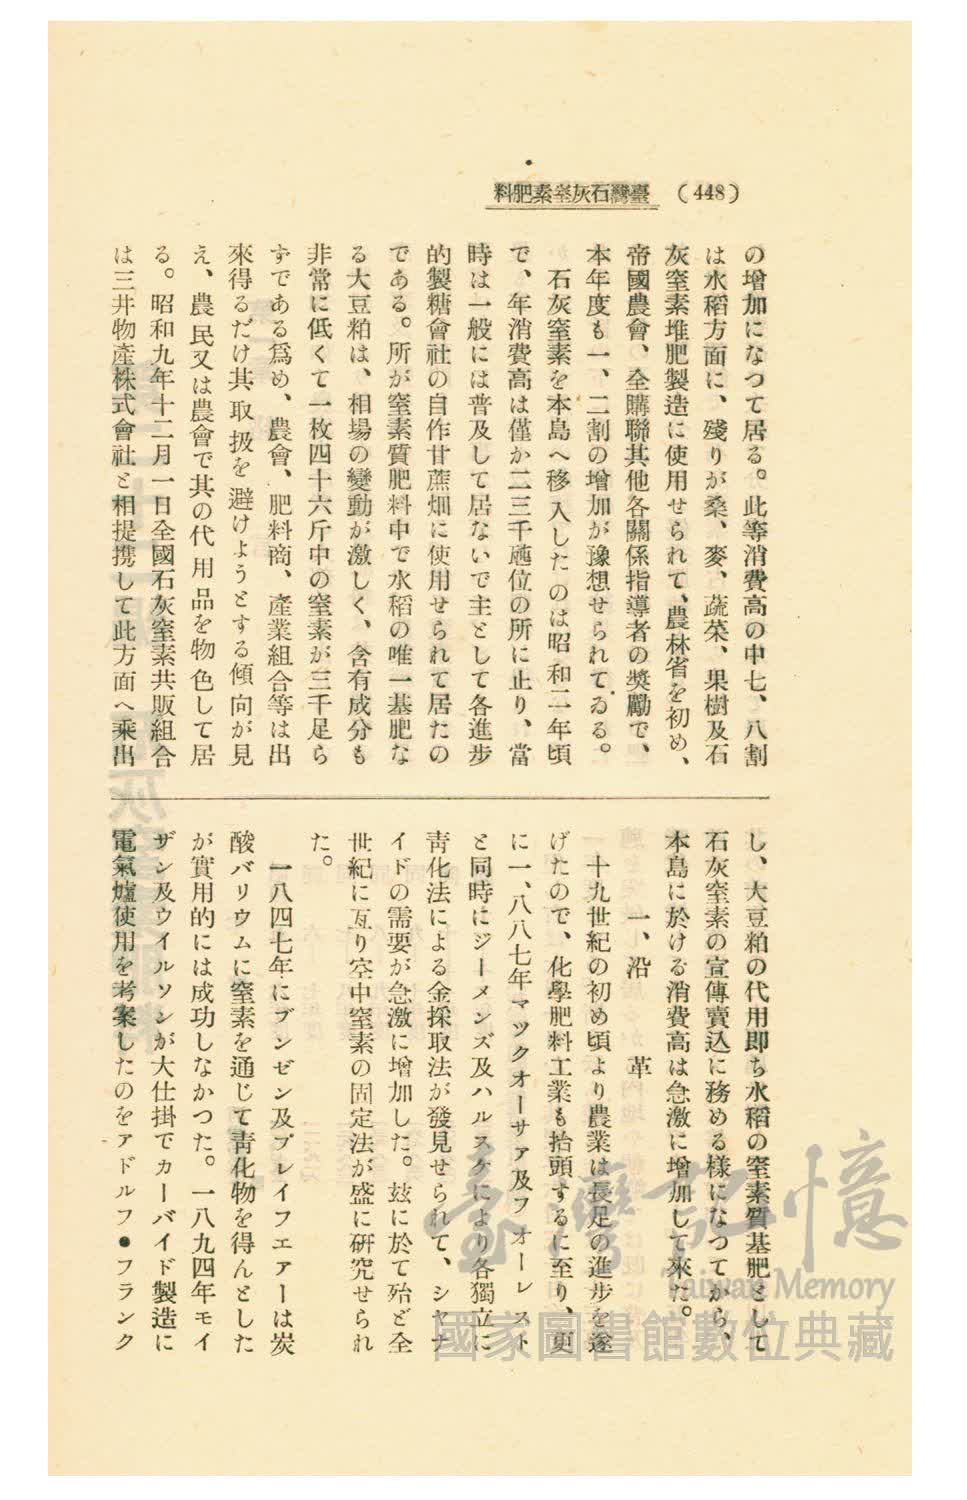 (448) 臺灣石灰窒素肥料
の增加になつて居る。此等消費高の中七、八割
は水稻方面に、殘りが桑、麥、蔬菜、果樹及石
灰窒素堆肥製造に使用せられて、農林省を初め、
帝國農會、全購聯其他各關係指導者の奬勵で、
本年度も一、二割の增加が豫想せられてゐる。
石灰窒素を本島へ移入したのは昭和二年頃
で、年消費高は僅か二三千瓲位の所に止り、當
時は一般には普及して居ないで主として各進步
的製糖會社の自作甘蔗畑に使用せられて居たの
である。所が窒素質肥料中で水稻の唯一基肥な
る大豆粕は、相場の變動が激しく、含有成分も
非常に低くて一枚四十六斤中の窒素が三千足ら
ずである爲め、農會、肥料商、產業組合等は出
來得るだけ其取扱を避けようとする傾向が見
え、農民又は農會で其の代用品を物色して居
る。昭和九年十二月一日全國石灰窒素共販組合
は三井物產株式會社と相提携して此方面へ乘出
し、大豆粕の代用卽ち水稻の窒素質基肥として
石灰窒素の宣傳賣込に務める樣になつてから、
本島に於ける消費高は急激に增加して來た。
一、沿革
十九世紀の初め頃より農業は長足の進步を遂
げたので、化學肥料工業も抬頭するに至り、更
に一、八八七年マツクオーサア及フオーレスト
と同時にジーメンズ及ハルスケにより各獨立に
靑化法による金採取法が發見せられて、シヤナ
イドの需要が急激に增加した。玆に於て殆ど全
世紀に亙り空中窒素の固定法が盛に硏究せられ
た。
一八四七年にブンゼン及プレイフエアーは炭
酸バリウムに窒素を通じて靑化物を得んとした
が實用的には成功しなかつた。一八九四年モイ
ザン及ウイルソンが大仕掛でカーバイド製造に
電氣爐使用を考案したのをアドルフ●フランク
臺灣記憶
Taiwan Memory
國家圖書館數位典藏